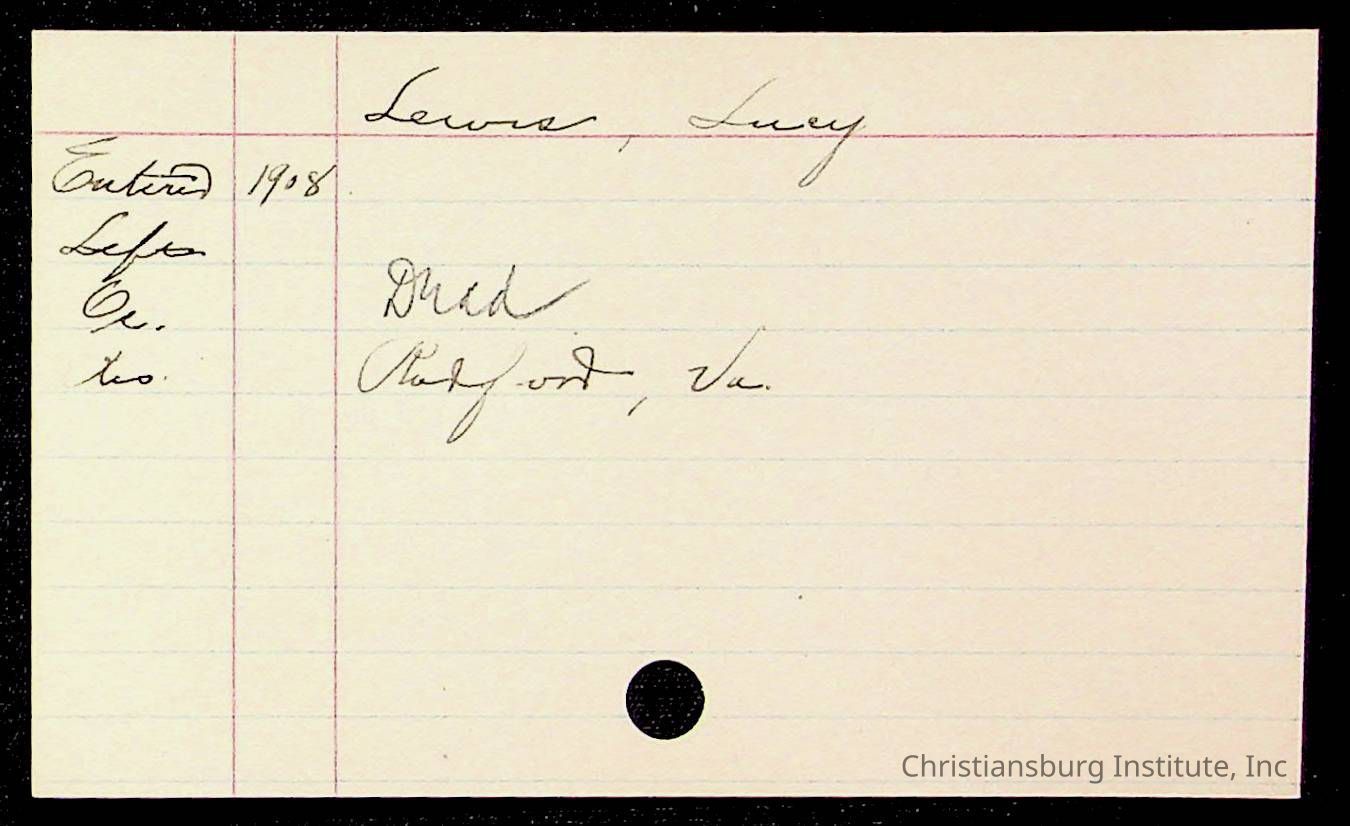 Lewis, Lucy
Entered 1908
Left
Oc. Dead
Res. Radford, Va.
Christiansburg Institute, Inc